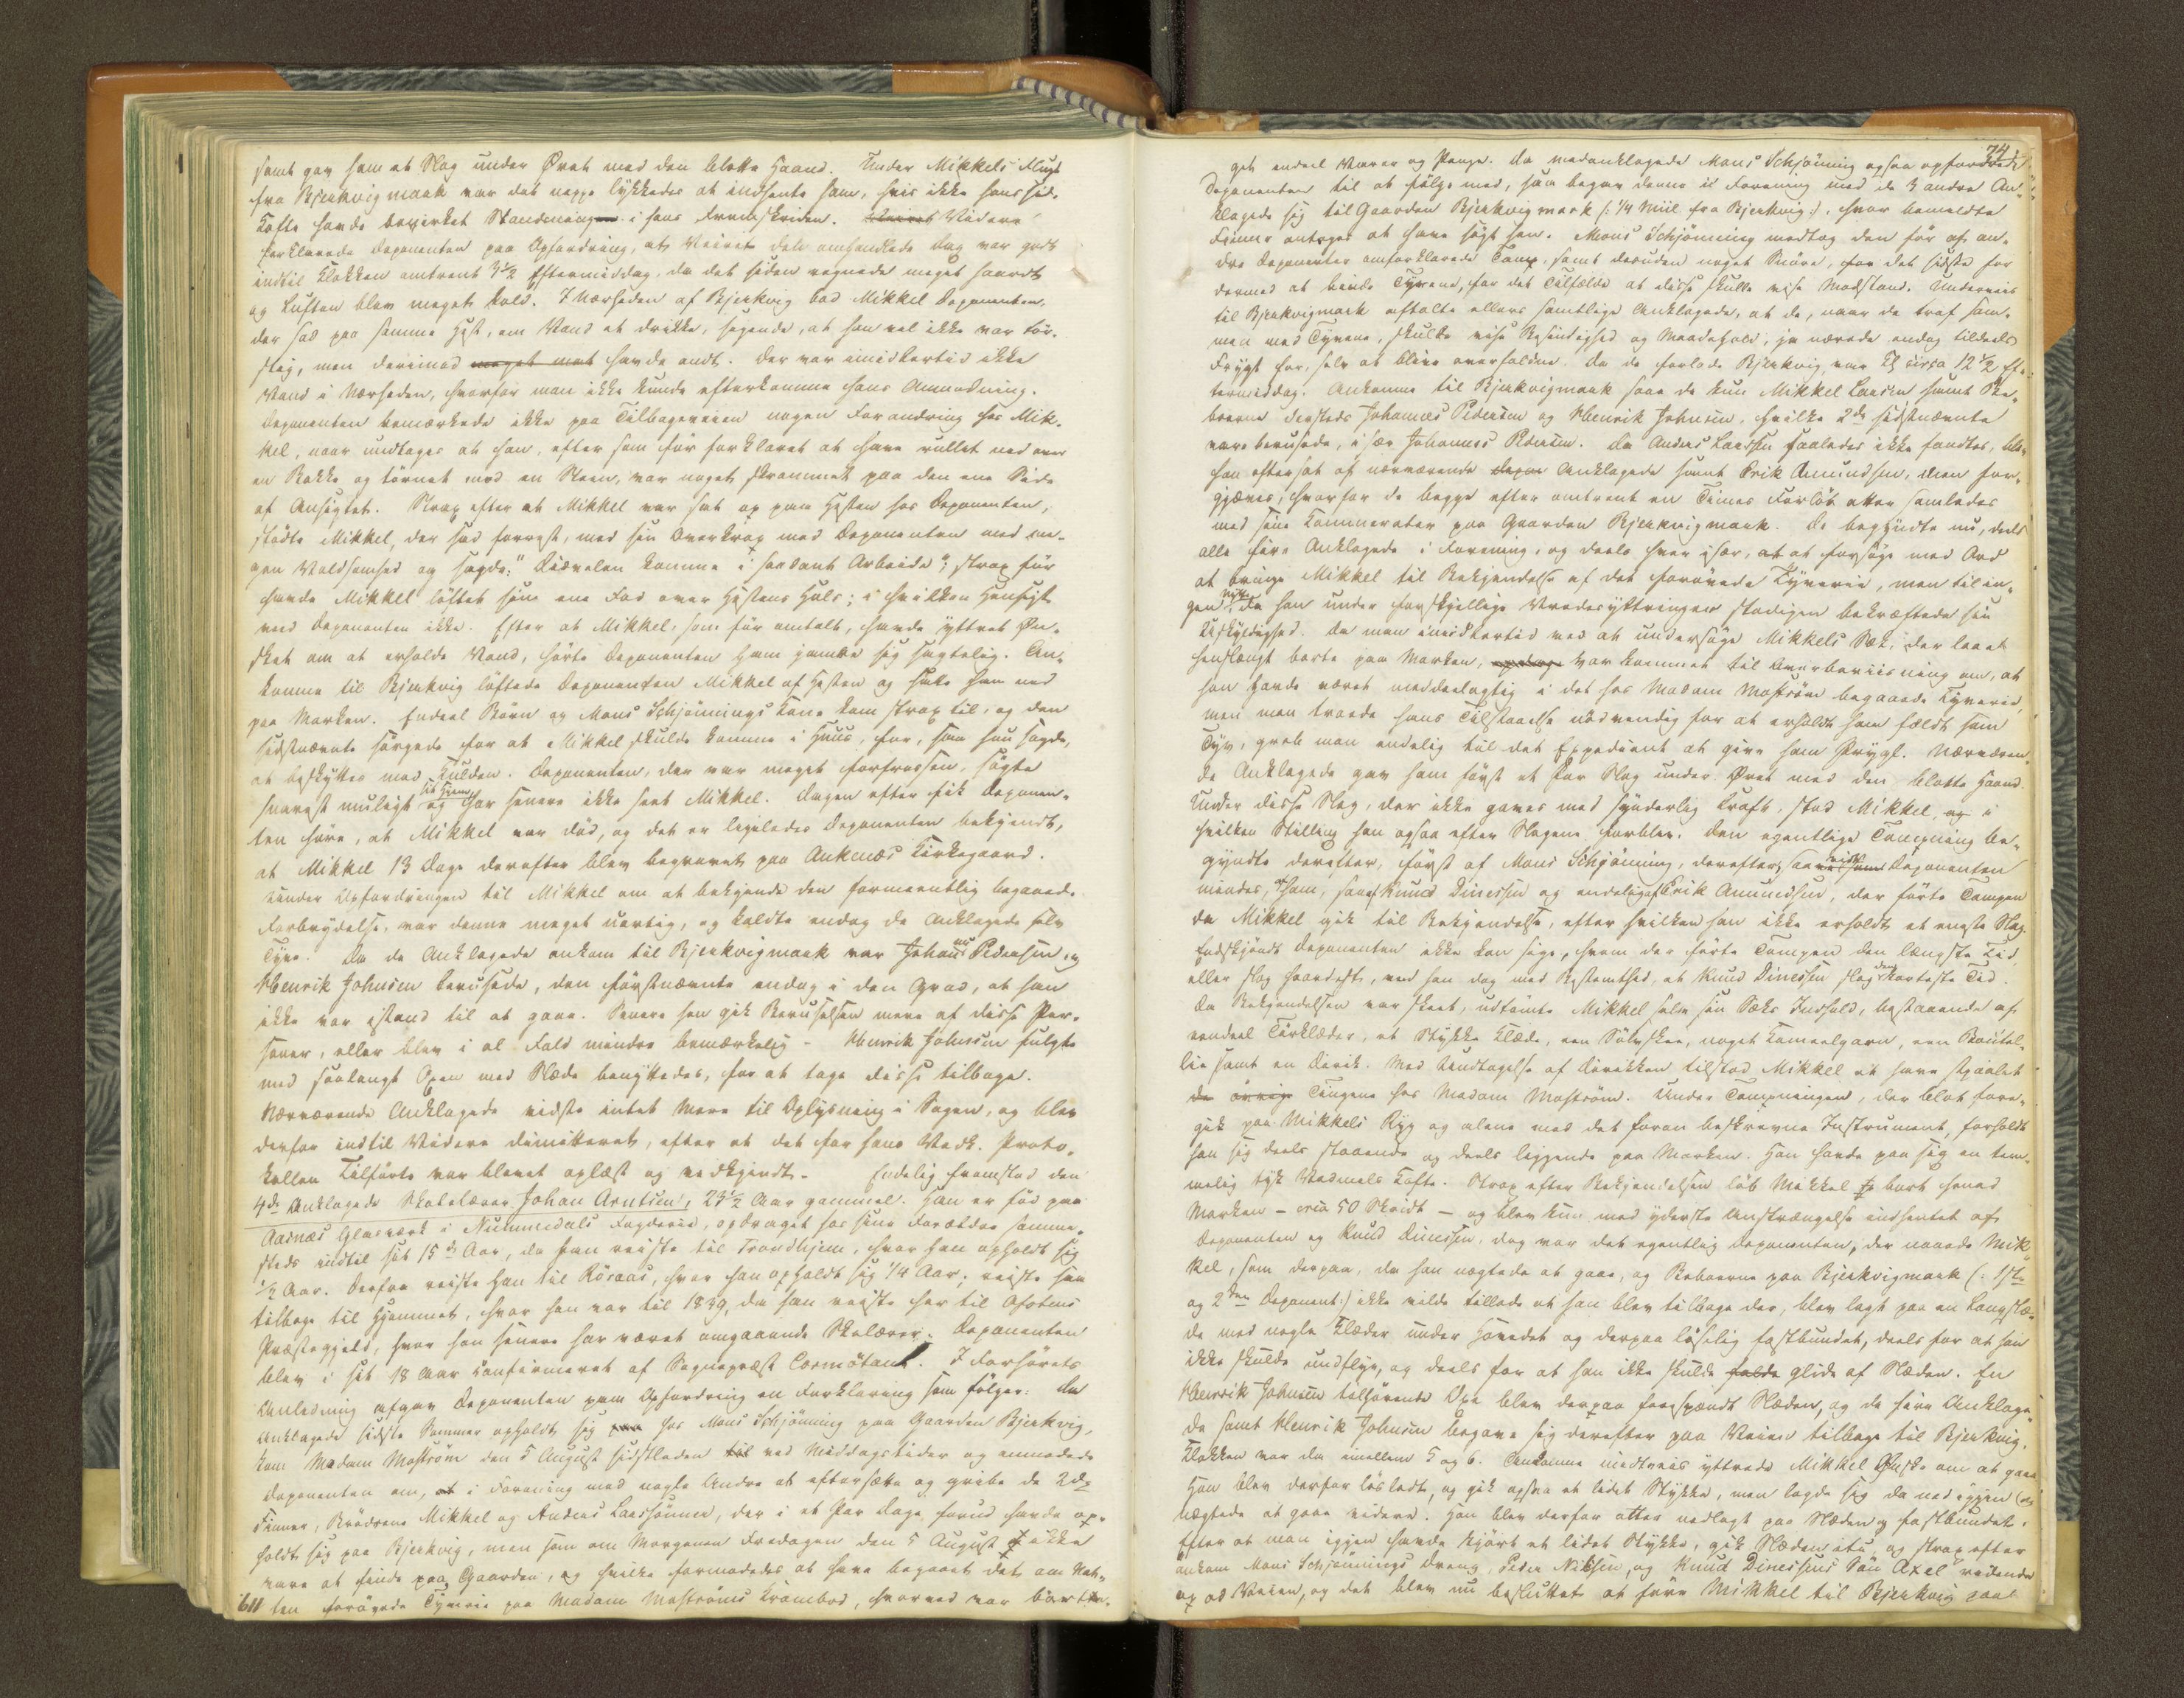 samt gav ham et Slag under Øret med den blotte Haand. Under Mikkels Flugt
fra Bjerkvigmark var det neppe lykkedes at indhente ham, hvis ikke hans sid-
Kofte havde bevirket Standsning i hans Fremskriden. Veiret Videre
forklarede Deponenten paa Opfordring, at Veiret dels omhandlede Dag var godt
indtil Klokken omtrent 3 1/2 Eftermiddag, da det siden regnede meget haardt
og Luften blev meget kold. I Nærheden af Bjerkvig bad Mikkel Deponenten,
der sad paa samme Hest, om Vand at drikke, sigende, at han vel ikke var tör-
stig, men derimod meget mat havde ondt. Der var imidlertid ikke
Vand i Nærheden, hvorfor man ikke kunde efterkomme hans Anmodning.
Deponenten bemærkede ikke paa Tilbageveien nogen Forandring hos Mik-
kel, naar undtages at han, efter som för forklaret at have rullet ned over
en Bakke og törnet mod en Steen, var noget skrammet paa den ene Side
af Ansigtet. Strax efter at Mikkel var sat op paa Hesten hos Deponenten,
stödte Mikkel, der sad forrest, med sin Overkrop mod Deponenten med en-
gen Voldsomhed og sagde: "Diævelen komme i saadant Arbeide"; strax för
havde Mikkel löftet sin ene Fod over Hestens Hals; i hvilken Hensigt
veed Deponenten ikke. Efter at Mikkel, som för omtalt, havde yttret Øn-
sket om at erholde Vand, hörte Deponenten ham jamre sig sagtelig. An-
komne til Bjerkvig löftede Deponenten Mikkel af Hesten og satte ham ned
paa Marken. Endeel Börn og Mons Schjönnings Kone kom strax til, og den
sidstnævnte sörgede for at Mikkel skulde komme i Huus, for, som hun sagde,
at beskyttes mod Kulden. Deponenten, der var meget forfrossen, sögte
snarest muligt sit Hjem og har senere ikke seet Mikkel. Dagen efter fik Deponen-
ten höre, at Mikkel var död, og det er ligeledes Deponenten bekjendt,
at Mikkel 13 Dage derefter blev begravet paa Ankenæs Kirkegaard.
Under Opfordringen til Mikkel om at bekjende den formeentlig begaaede
Forbrydelse, var denne meget uartig, og kaldte endog de Anklagede selv
Tyve. Da de Anklagede ankom til Bjerkvigmark var Johannes Pedersen og
Henrik Johnsen berusede, den förstnævnte endog i den Grad, at han
ikke var istand til at gaae. Senere hen gik Beruselsen mere af disse Per-
soner, eller blev i al Fald mindre bemærkelig - Henrik Johnsen fulgte
med saalangt Oxen med Slæde benyttedes, for at tage disse tilbage.
Nærværende Anklagede vidste intet Mere til Oplysning i Sagen, og blev
derfor indtil Videre dimitteret, efter at det for hans Vedk. Proto-
kollen Tilförte var blevet oplæst og vedkjendt. - Endelig fremstod den
4de Anklagede Skolelærer Johan Arntsen, 23 1/2 Aar gammel. Han er föd paa
Aasnæs Glasværk i Nummedals Fogderie, opdraget hos sine Forældre samme-
steds indtil sit 15de Aar, da han reiste til Trondhjem, hvor han opholdt sig
1/2 Aar. Derfra reiste han til Röraas, hvor han opholdt sig 1/4 Aar; reiste saa
tilbage til Hjemmet, hvor han var til 1839, da han reiste her til Ofotens
Præstegjeld, hvor han senere har været omgaaende Skolærer. Deponenten
blev i sit 18 Aar Confirmeret af Sognepræst Cormötant. I Forhörets
Anledning afgav Deponenten paa Opfordring en Forklaring som fölger: Da
Anklagede sidste Sommer opholdt sig paa hos Mons Schjönning paa Gaarden Bjerkvig,
kom Madam Moström den 5 August sidstleden til ved Middagstider og anmodede
Deponenten om, at i Forening med nogle Andre at eftersætte og gribe de 2de
Finner, Brödrene Mikkel og Anders Larssönner, der i et Par Dage forud havde op-
holdt sig paa Bjerkvig, men som om Morgenen Fredagen den 5 August ikke
vare at finde paa Gaarden, og hvilke formodedes at have begaaet det om Nat-
ten forövede Tyverie paa Madam Moströms Krambod, hvorved var bortta-
611
74
get endeel Varer og Penge. Da medanklagede Mons Schjönning ogsaa opfordrede
Deponenten til at fölge med, saa begav denne i Forening med de 3 andre An-
klagede sig til Gaarden Bjerkvigmark (: 1/4 Miil fra Bjerkvig :), hvor bemeldte
Finner antoges at have sögt hen. Mons Schjönning medtog den för af an-
dre Deponenter omforklarede Tamp, samt desuden noget Snöre, for det sidste for
dermed at binde Tyvene, for det Tilfælde at disse skulle vise Modstand. Underveis
til Bjerkvigmark aftalte ellers samtlige Anklagede, at de, naar de traf sam-
men med Tyvene, skulde vise Besindighed og Maadehold, ja nærede endog tildeels
Frygt for, selv at blive overfaldne. Da de forlode Bjerkvig var Kl circa 12 1/2 Ef-
termiddag. Ankomne til Bjerkvigmark saae de kun Mikkel Larsen samt Be-
boerne dersteds Johannes Pedersen og Henrik Johnsen, hvilke 2de sidstnævnte
vare berusede, i sær Johannes Pedersen. Da Anders Larssen saaledes ikke fandtes, blev
han eftersat af nærværende Depon Anklagede samt Erik Amundsen, men for-
gjæves, hvorfor de begge efter omtrent en Times Forlöb atter samledes
med sine Kammerater paa Gaarden Bjerkvigmark. De begyndte nu, deels
alle fire Anklagede i Forening, og deels hver især, at at forsöge med Ord
at bringe Mikkel til Bekjendelse af det forövede Tyverie, men til in-
gen Nytte, da han under forskjellige Vredesyttringer stadigen bekræftede sin
Uskyldighed. Da man imidlertid ved at undersöge Mikkels Sæk, der laae
henslængt borte paa Marken, opdage var kommet til Overbeviisning om, at
han havde været meddeelagtig i det hos Madam Moström begaaede Tyverie,
men man troede hans Tilstaaelse nödvendig for at erholde ham fældt som
Tyv, greb man endelig til det Expedient at give ham Prygl. Nærværen-
de Anklagede gav ham först et Par Slag under Øret med den blotte Haand.
Under disse Slag, der ikke gaves med synderlig Kraft, stod Mikkel, og i
hvilken Stilling han ogsaa efter Slagene forblev. Den egentlige Tampning be-
gyndte derefter, först af Mons Schjönning, derefter, saavidt Deponenten
mindes, ham, saa af Knud Dinessen og endelig af Erik Amundsen, der förte Tampen
da Mikkel gik til Bekjendelse, efter hvilken han ikke erholdt et eneste Slag.
Endskjöndt Deponenten ikke kan sige, hvem der förte Tampen den længste Tid,
eller slog haardest, ved han dog med Bestemthed, at Knud Dinessen slog den korteste Tid.
Da Bekjendelsen var skeet, udtömte Mikkel selv sin Sæks Indhold, bestaaende af
eendeel Törklæder, et Stykke Klæde, een Sölvskee, noget Kameelgarn, een Bouteil-
lie samt en Dirik. Med Undtagelse af Dirikken tilstod Mikkel at have stjaalet
de övrige Tingene hos Madam Moström. Under Tampningen, der blot fore-
gik paa Mikkels Ryg og alene med det foran beskrevne Instrument, forholdt
han sig deels staaende og deels liggende paa Marken. Han havde paa sig en tem-
melig tyk Vadmels Kofte. Strax efter Bekjendelsen löb Mikkel bort henad
Marken - circa 50 Skridt - og blev kun med yderste Anstrængelse indhentet af
Deponenten og Knud Dinessen, dog var det egentlig Deponenten, der naaede Mik-
kel, som derpaa, da han nægtede at gaae, og Beboerne paa Bjerkvigmark (: 1ste
og 2den Deponent :) ikke vilde tillade at han blev tilbage der, blev lagt paa en Langslæ-
de med nogle Klæder under Hovedet og derpaa löselig fastbundet, deels for at han
ikke skulde undflye, og deels for at han ikke skulde falde glide af Slæden. En
Henrik Johnsen tilhörende Oxe blev derpaa forspændt Slæden, og de fire Anklage-
de samt Henrik Johnsen begave sig derefter paa Veien tilbage til Bjerkvig.
Klokken var da imellem 5 og 6. Ankomne midtveis yttrede Mikkel Ønske om at gaae
Han blev derfor löslodt, og gik ogsaa et lidet Stykke, men lagde sig da ned igjen og
nægtede at gaae videre. Han blev derfor atter nedlagt paa Slæden og fastbundet.
Efter at man igjen havde kjört et lidet Stykke, gik Slæden itu, og strax efter
ankom Mons Schjönnings Dreng, Peder Nilssen, og Knud Dinessens Sön Axel ridende
op ad Veien, og det blev nu besluttet at före Mikkel til Bjerkvig paa